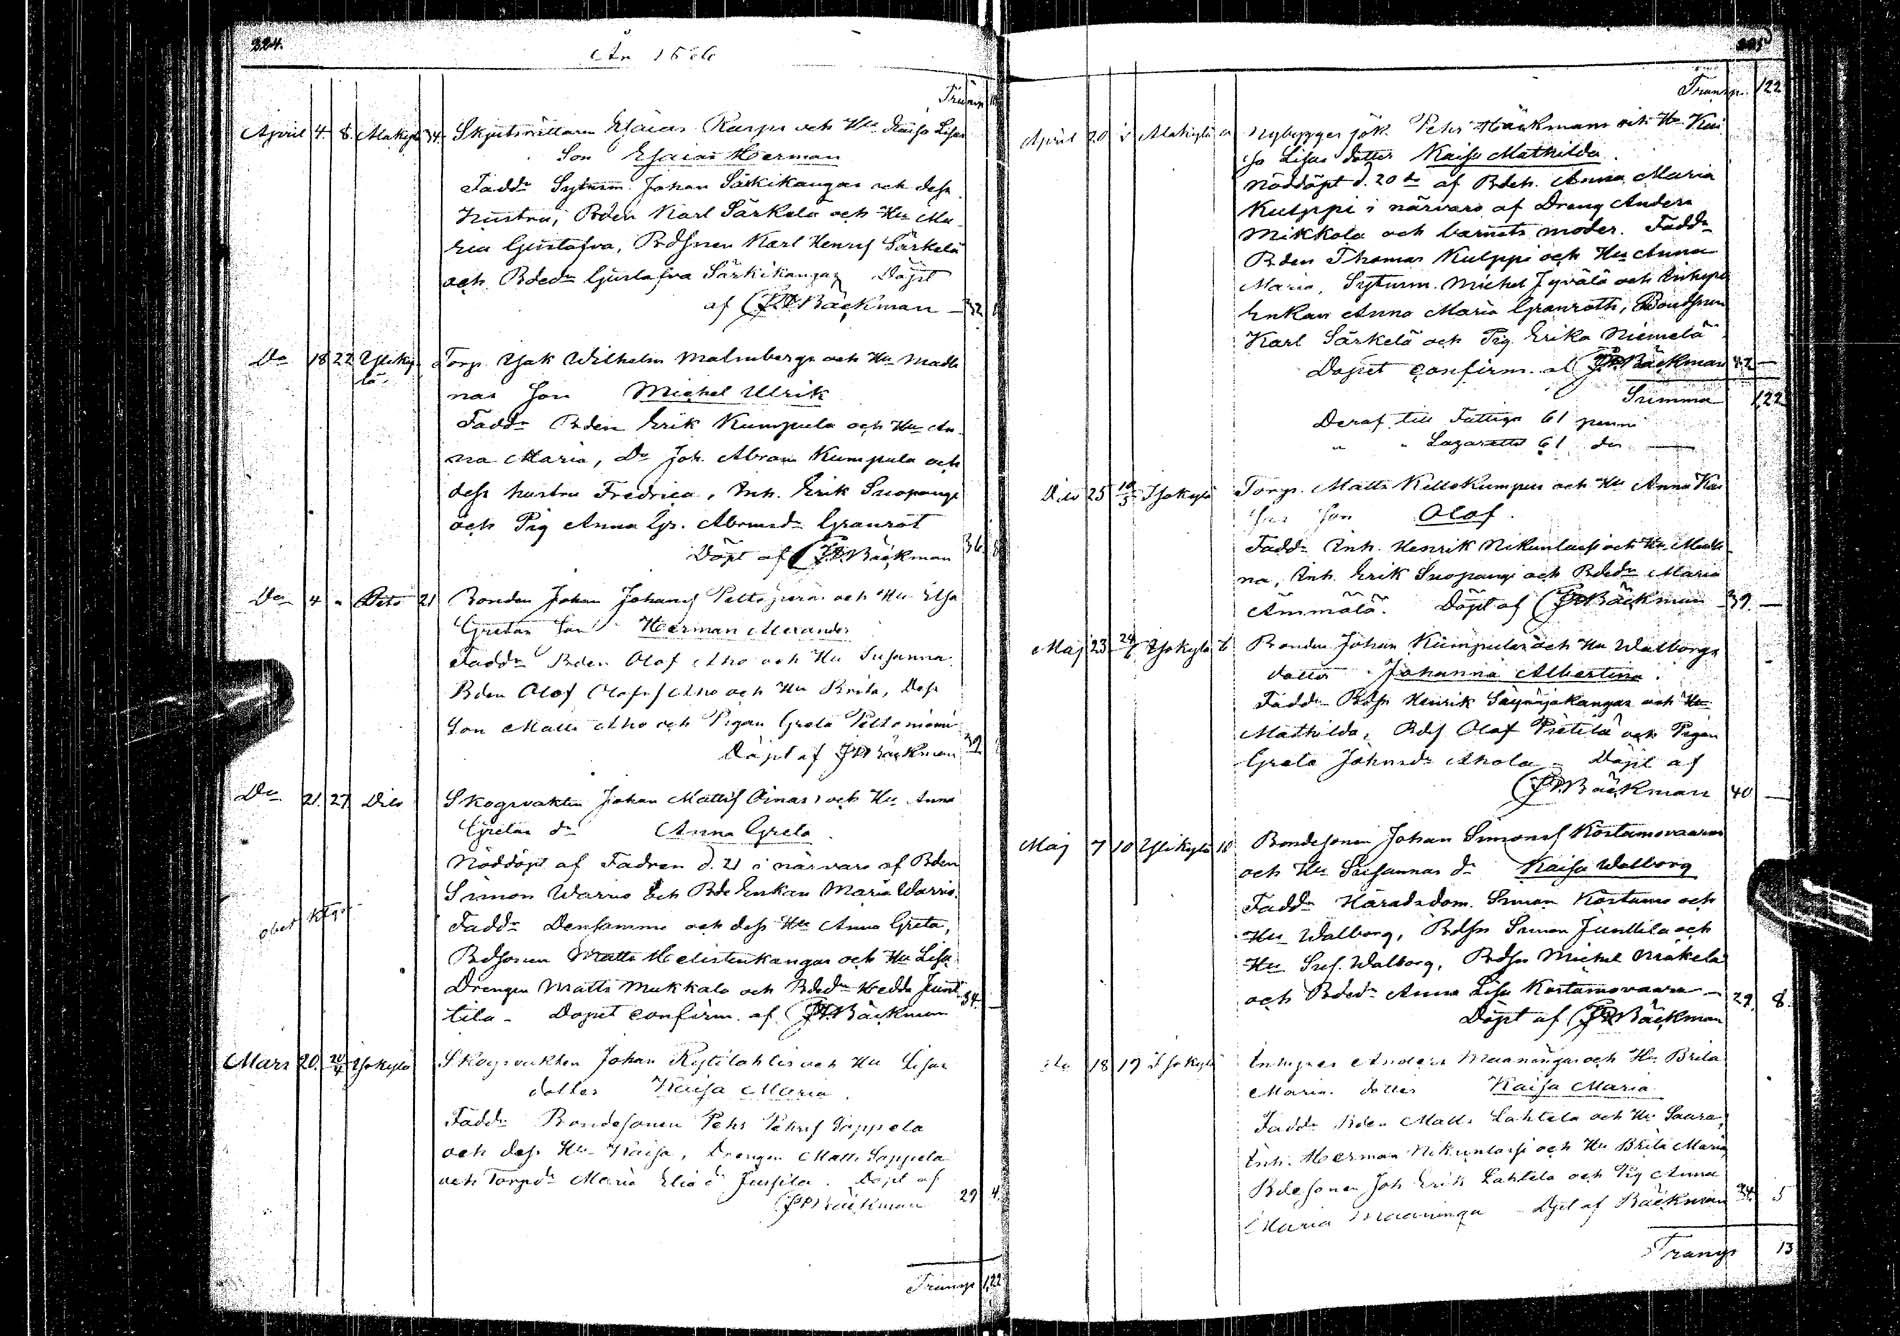 224.
År 1866
Transp.
April 4. 8. Alakylä 34. Skjutsrättaren Esaias Karps och Hu Kaisa Lisas
Son Esaias Herman
Fadd. Sytnm. Johan Särkikangas och dess
hustru, Bden Karl Särkelä och Hu Ma-
ria Gustafva, Bdsnen Karl Henrs Särkelä
och Bdedr Gustafva Särkikangas Döpt
af Bäckman 32
Do 18 22 Ylikylä Torp. Isak Wilhelm Malmbergs och Hu Madle
nas Son Michel Ulrik
Fadd. Bden Erik Kumpula och Hu An-
na Maria, Do Joh. Abram Kumpula och
dess hustru Fredrica, Inh. Erik Snopangi
och Pig Anna Gr. Abrmsdr Granrot
Döpt af Bäckman 36
Do 4 " Dito 21 Bonden Johan Johans Peltoperäs och Hu Elsa
Gretas Son Herman Alexander
Fadd. Bden Olof Aho och Hu Susanna
Bden Olof Olofss Aho och Hu Brita, Dess
Son Matts Aho och Pigan Greta Peltoniemi
Döpt af Bäckman 39
Do 21. 27. Dito Skogsvakten Johan Matts Oinas och Hu Anna
Gretas dr Anna Greta
Nöddöpt af Fadren d. 21 i närvaro af Bden
Simon Warrio och Bde Enkan Maria Warrio.
obet Ktgr
Fadd. Densamme och dess Hu Anna Greta,
Bdsonen Matts Helistenkangas och Hu Lisa
Drengen Matts Mukkala och Bdedr Hedda Junt-
tila - Dopet confirm. af Bäckman 34
Mars 20. 20/4 Isokylä Skogsvakten Johan Kytilahtis och Hu Lisas
dotter Kaisa Maria.
Fadd. Bondesonen Pehr Pehrs Soppela
och dess Hu Kaisa, Drengen Matts Soppela
och Torpdr Maria Eliæ dr Jussila. Döpt af
Bäckman 29 4.
Transp 1,22
225
Transp. 122
April 20 Alakylä Nybygger sök. Pehr Häckmans och Hu Kai
sa Lisas dotter Kaisa Mathilda.
Nöddöpt d. 20 de af Bdeh. Anna Maria
Kulppi i närvaro af Dreng Anders
Mikkola och barnets moder. Fadd.
Bden Thomas Kulppi och Hu Anna
Maria, Sytnm. Michel Jyvälä och Inhyse
Enkan Anna Maria Granroth, Bondsonen
Karl Särkelä och Pig Erika Niemelä
Dopet confirm. af Bäckman 42 —
Summa 1,22
Deraf till Fattiga 61 penni
" " Lazarettet 61 do —
Dito 25 10/5 Isokylä Torp. Matts Kellokumpus och Hu Anna Kai
sas Son Olof.
Fadd. Inh. Henrik Nikunlassi och Hu Madle-
na, Inh. Erik Snopangi och Bdedr Maria
Ämmälä. Döpt af Bäckman 39 —
Maj 23 24/6 Isokylä 6 Bonden Johan Kumpulas och Hu Walborgs
dotter Johanna Albertina.
Fadd. Bdsn Henrik Säynäjäkangas och Hu
Mathilda, Bds Olof Pietilä och Pigan
Greta Johnsdr Ahola - Döpt af
Bäckman 40 —
Maj 7 10 Ylikylä 18 Bondesonen Johan Simons Kostamovaaras
och Hu Susannas dr Kaisa Walborg
Fadd. Häradsdom. Simon Kostamo och
Hu Walborg, Bdsn Simon Junttila och
Hu Sus. Walborg, Bdsn Michel Mäkelä
och Bdedr Anna Lisa Kostamovaara — 29. 8.
Döpt af Bäckman
Do 18 19 Isokylä Inhyses Anders Maaningas och Hu Brita
Maria dotter Kaisa Maria
Fadd. Bden Matts Lahtela och Hu Saara,
Inh. Herman Nikunlassi och Hu Brita Maria
Bdesonen Joh Erik Lahtela och Pig Anna
Maria Maaninga - Döpt af Bäckman 34 5
Transp 13